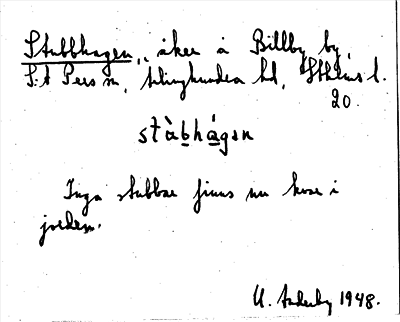 Stubbhagen, åker å Billby by,
S:t Pers sn, Seminghundra hd, Sthlms l.
20.
stàbhágen
Inga stubbar finns nu kvar i
jorden.
U. 1948.